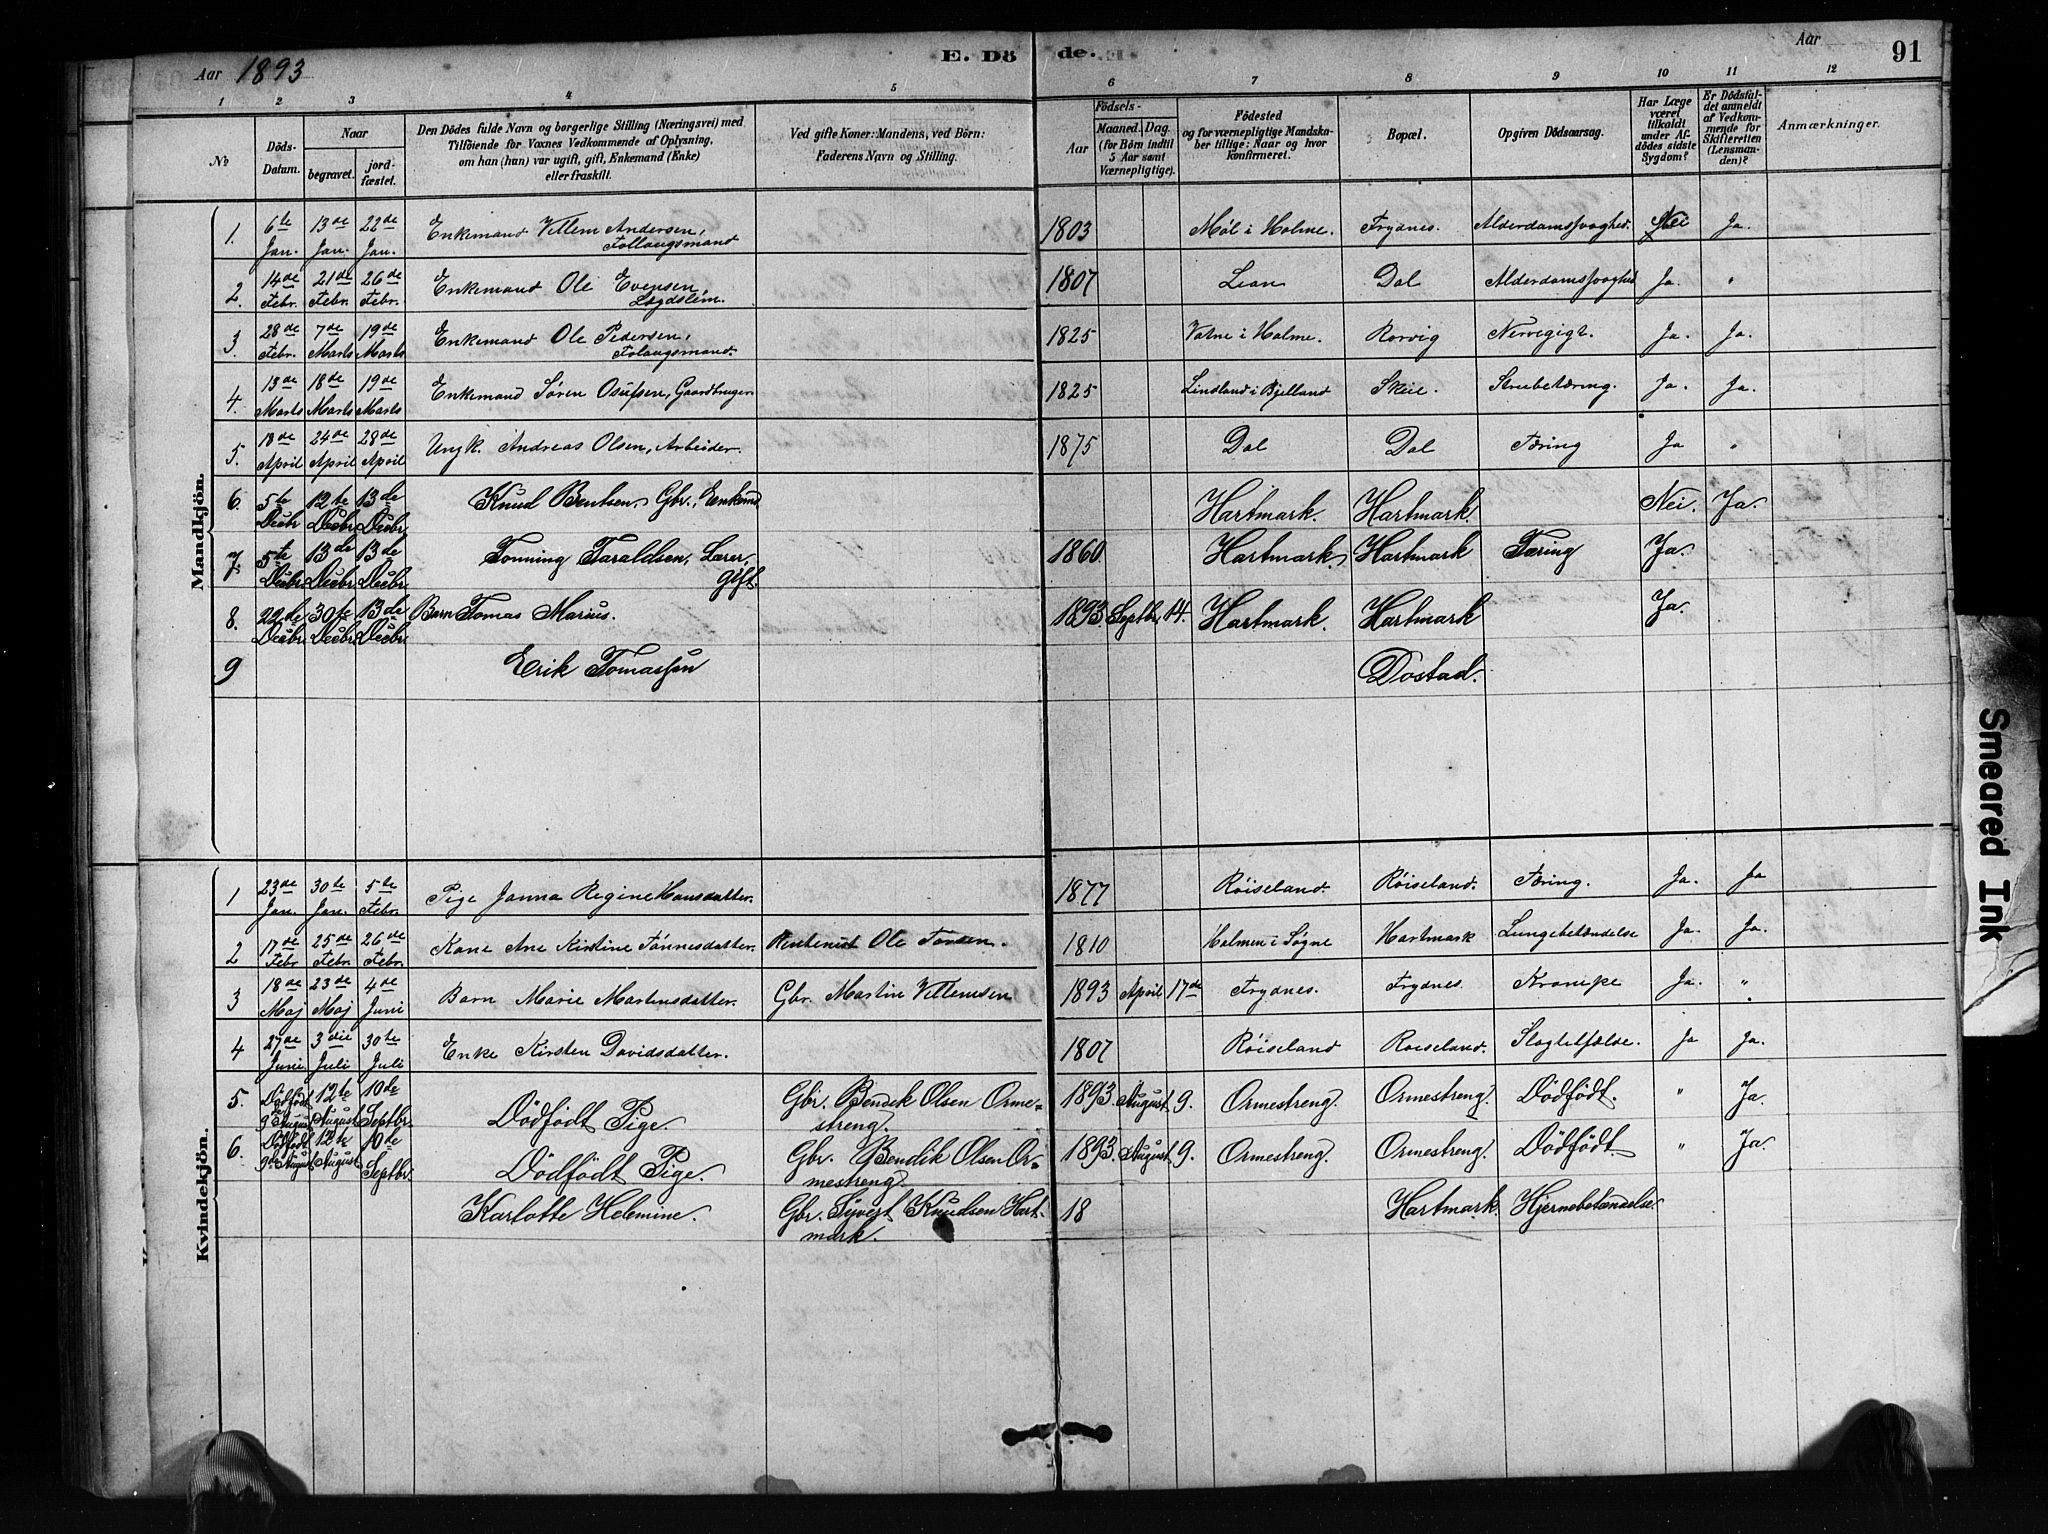 Aar 1893
E. Dö
de.
Aar
91
1 2 3 4 5 6 7 8 9 10 11 12
No
Döds-
Datum.
Naar
begravet.
jord-
fæstet.
Den Dödes fulde Navn og borgerlige Stilling (Næringsvei) med
Tilföiende for Voxnes Vedkommende af Oplysning,
om han (hun) var ugift, gift, Enkemand (Enke)
eller fraskilt.
Ved gifte Koner: Mandens, ved Börn:
Faderens Navn og Stilling.
Födsels-
Aar
Maaned. Dag.
(for Börn indtil
5 Aar samt
Værnepligtige).
Födested
og for værnepligtige Mandska-
ber tillige: Naar og hvor
konfirmeret.
Bopæl.
Opgiven Dödsaarsag.
Har Læge
været
tilkaldt
under Af-
dödes sidste
Sygdom?
Er Dödsfal-
det anmeldt
af Vedkom-
mende for
Skifteretten
(Lensman-
den)?
Anmærkninger.
Mandkjön.
1. 6te Jan. 13de Jan. 22de Jan. Enkemand Villem Andersen, 1803 Möl i Holme. Frydnes. Nei Ja.
2. 14de Febr. 21de Febr. 26de Febr. Enkemand Ole Evensen, Lægdslem. 1807 Lian Dal Ja. "
3. 28de Febr. 7de Marts 19de Marts Enkemand Ole Pedersen, 1825 Vatne i Holme. Rorvig Nervegigt. Ja. Ja.
4. 13de Marts 18de Marts 19de Marts Enkemand Sören Osufsen, Gaardbruger 1825 Lindland i Bjelland Skeie. Strubetæring. Ja. Ja.
5. 18de April 24de April 28de April Ungk. Andreas Olsen, Arbeider. 1875 Dal Dal Tæring Ja "
6. 5te Decbr 12te Decbr 13de Decbr Knud Bentsen, Gbr., Enkemd. Hartmark. Hartmark. Nei. Ja.
7. 5te Decbr. 13de Decbr. 13de Decbr Tonning Taraldsen, Lærer, gift. 1860. Hartmark. Hartmark Tæring Ja.
8. 22de Decbr 30te Decbr 13de Decbr Barn Tomas Marius. 1893. Septbr. 14. Hartmark. Hartmark Ja.
9 Erik Tomassen Dostad.
Kvindekjön.
1 23de Jan. 30te Jan. 5te Febr. Pige Janna Regine Hansdatter. 1877 Röiseland. Röiseland. Tæring. Ja. Ja
2 17de Febr 25de Febr. 26de Febr. Kone Ane Kirstine Tönnesdatter. Rentenist Ole 1810 Holmen i Søgne Hartmark Lungebetændelse Ja. Ja.
3 18de Maj 23de Maj 4de Juni Barn Marie Martinsdatter. Gbr. Martin Villemsen 1893 April 17de Frydnes. Frydnes. Krampe Ja. "
4 27de Juni 3die Juli 30te Juli Enke Kirsten Davidsdatter. 1807 Röiseland Roiseland. Slagtilfælde. Ja Ja.
5. Dödfödt 9de August 12te August 10de Septbr. Dödfödt Pige. Gbr. Bendik Olsen Orme-
streng. 1893. August 9. Ormestreng. Ormestreng. Dödfödt. " Ja.
6. Dödfödt 9de August 12te August 10de Septbr. Dödfödt Pige. Gbr. Bendik Olsen Or-
mestreng. 1893. August 9. Ormestreng. Ormestreng. Dödfödt. " Ja.
Karlotte Helemine. Gbr. Syvert Knudsen Hart-
mark. 18 Hartmark. Hjernebetændelse.
Smeared Ink